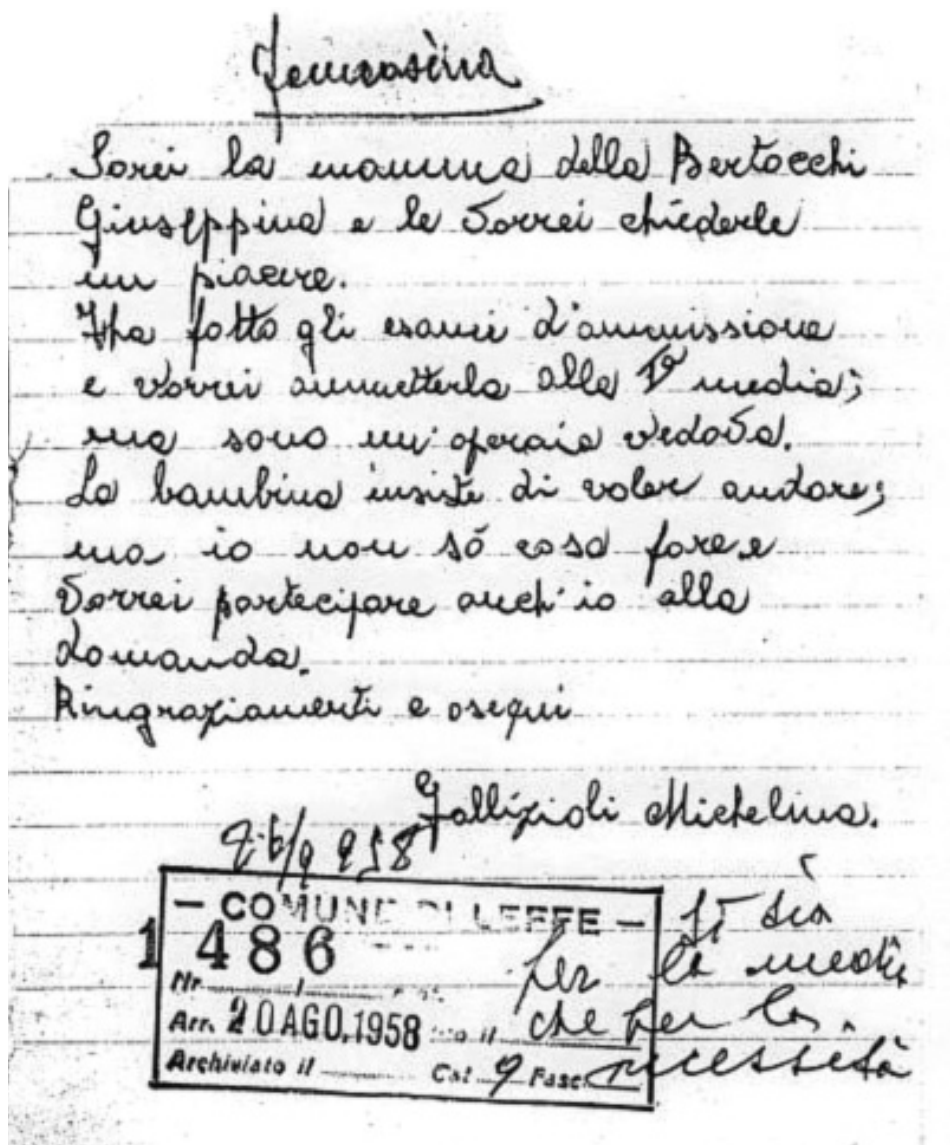 Sarei la mamma della Bertocchi
Giuseppina e le vorrei chiederle
un piacere.
Ha fatto gli esami d'ammissione
e vorrei ammetterla alla Iª media;
ma sono un'operaia vedova.
La bambina insiste di voler andare;
ma io non só cosa fare e
vorrei partecipare anch'io alla
domanda.
Ringraziamenti e osequi
Gallizioli Michelina.
- COMUNE DI LEFFE -
1486
Nr.
Arr. 20 AGO. 1958
Archiviato il Cat. 9 Fasc.
per la
che per la
necessità